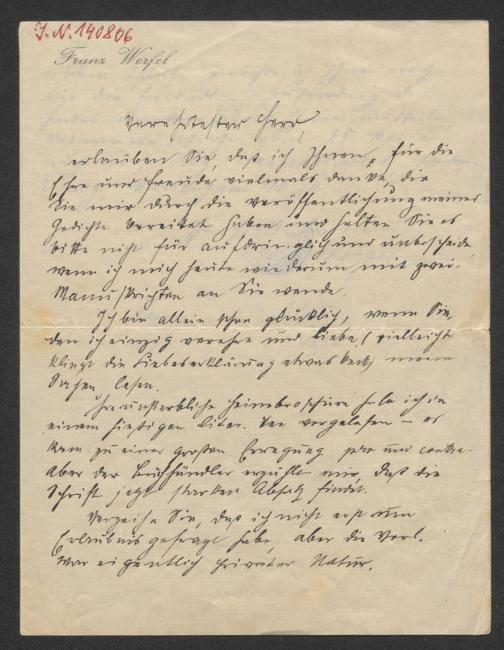 J.N. 140806
Franz Werfel
Verehrtester Herr,
erlauben Sie, daß ich Ihnen, für die
Ehre und Freude vielmals danke, die
Sie mir durch die Veröffentlichung meiner
Gedichte bereitet haben und halten Sie es
bitte nicht für aufdringlich und unbescheiden
wenn ich mich heute wiederum mit zwei
Manuskripten an Sie wende.
Ich bin allein schon glücklich, wenn Sie,
den ich einzig verehre und liebe, (vielleicht
klingt die Liebeserklärung etwas keck) meine
Sachen lesen.
Ihre unsterbliche Heinebroschüre habe ich in
einem hiesigen liter. Tee vorgelesen – es
kam zu einer großen Erregung pro und contra.
Aber der Buchhändler erzählt mir, daß die
Schrift jetzt starken Absatz findet.
Verzeihen Sie, daß ich nicht erst um
Erlaubnis gefragt habe, aber die Vorl.
war eigentlich privater Natur.